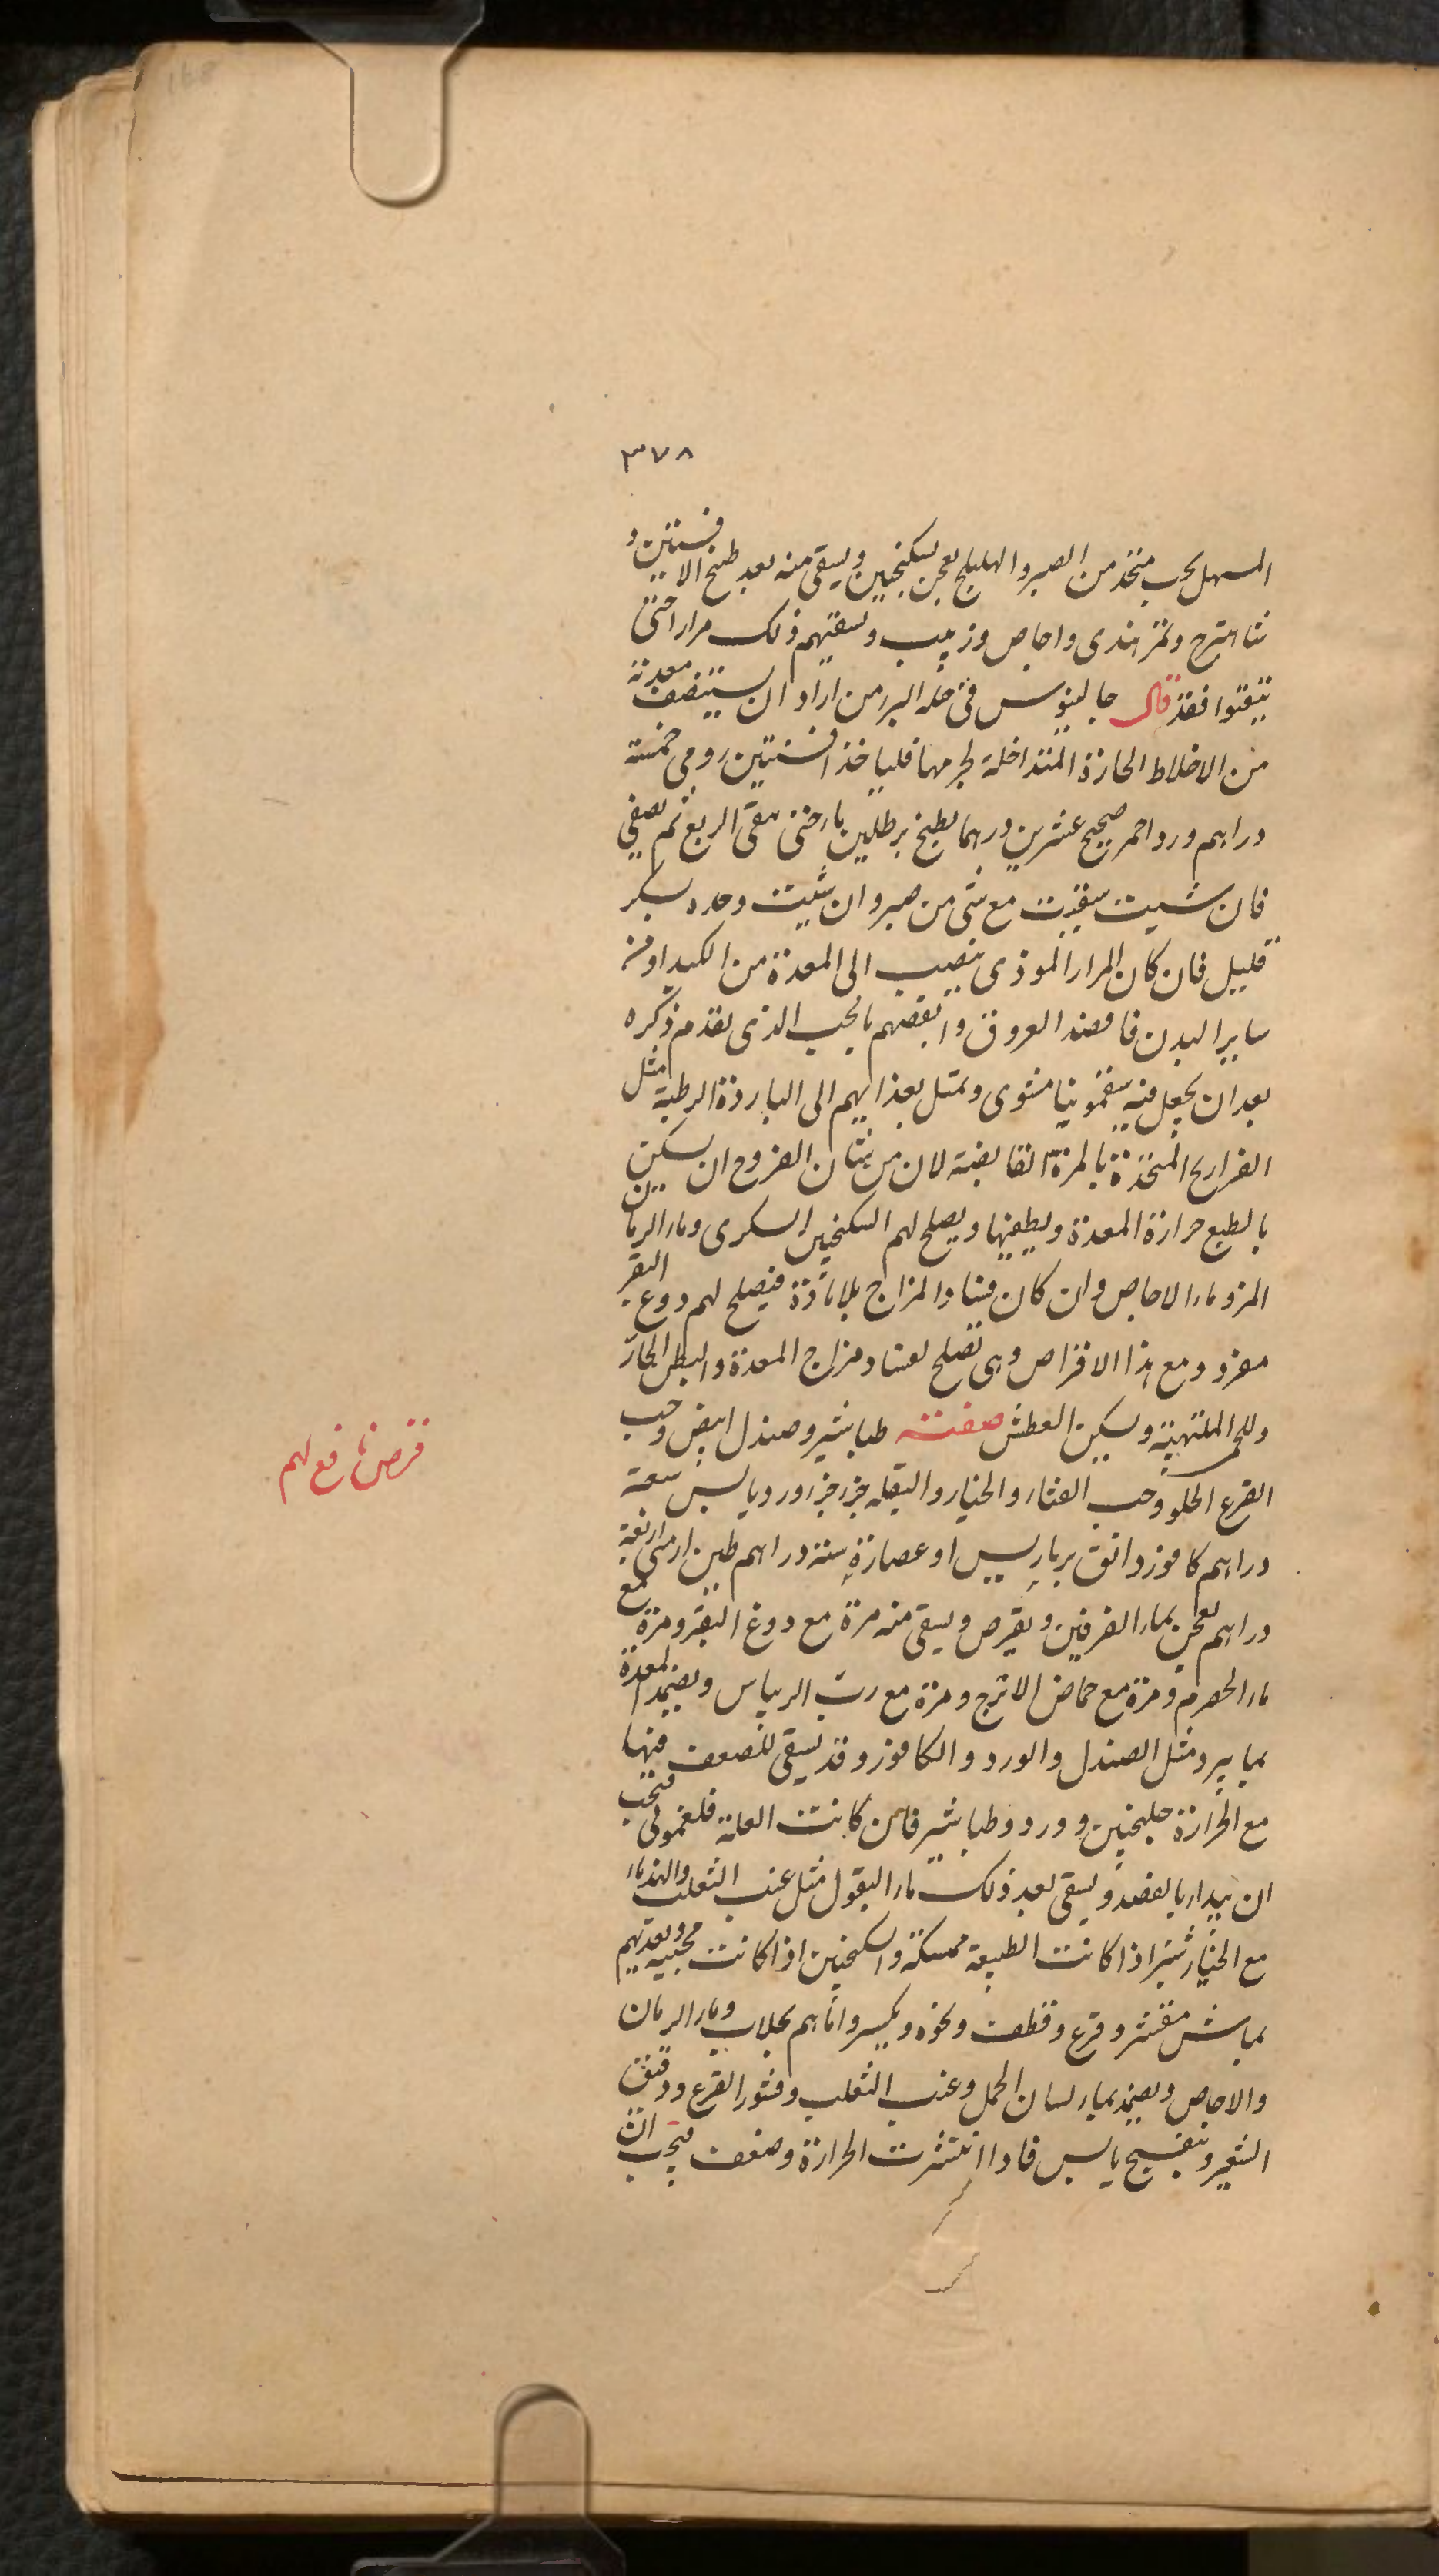 ٣٧٨
المسهل بحب متخذ من الصبر والهليلج يعجن بسكنجبين ويسقى منه بعد طبخ الافسنتين و
شاهترج وتمر هندى واجاص وزبيب وتسقيهم ذلك مرارا حتى
ينقوا فقد قال جالينوس فى حيلة البرء من اراد ان يستنضف معدته
من الاخلاط الحارة المتداخلة لجرمها فلياخذ افسنتين رومى خمسة
دراهم ورد احمر صحيح عشرين درهما يطبخ برطلين ماء حتى يبقى الربع ثم يصفى
فان شيت سقيت مع شى من صبر وان شيت وحده بسكر
قليل فان كان المرار الموذى ينصب الى المعدة من الكبد او من
ساير البدن فافصد العروق وانفضهم بالحب الذى تقدم ذكره
بعد ان يجعل فيه سقمونيا مشوى وتمثل بغذايهم الى الباردة الرطبة مثل
الفراريج المتخذة بالمزة القابضة لان من شان الفروج ان يسكن
بالطبع حرارة المعدة ويطفيها ويصلح لهم السكنجبين السكرى وماء الرمان
المز وماء الاجاص وان كان فساد المزاج بلا مادة فيصلح لهم دوغ البقر
مفرد ومع هذا الاقراص وهى تصلح لفساد مزاج المعدة والبطن الحار
وللحمى الملتهبة وتسكين العطش صفته طباشير وصندل ابيض وحب
القرع الحلو وحب القثاء والخيار والبقلة جزء جزء ورد يابس سبعة
دراهم كافور دانق برباريس او عصارة ستة دراهم طين ارمنى اربعة
دراهم يعجن بماء الفرفين ويقرص ويسقى منه مرة مع دوغ البقر ومرة مع
ماء الحصرم ومرة مع حماض الاترج ومرة مع رب الريباس ويضمد المعدة
بما يبرد مثل الصندل والورد والكافور وقد يسقى للضعف فيها
مع الحرارة جلنجبين وورد وطباشير فان كانت العلة فلغمونى فيجب
ان يبدا بالفصد ويسقى بعد ذلك ماء البقول مثل عنب الثعلب والهندباء
مع الخيارشنبر اذا كانت الطبيعة ممسكة والسكنجبين اذا كانت مجيبه وتغذيهم
بماش مقشر وقرع وقطف ونحوه ويكسر واناهم بجلاب وماء الرمان
والاجاص ويضمد بماء لسان الحمل وعنب الثعلب وقشور القرع ودقيق
الشعير وبنفسج يابس فاذا انتشرت الحرارة وضعفت فيجب ان
قرص نافع لهم